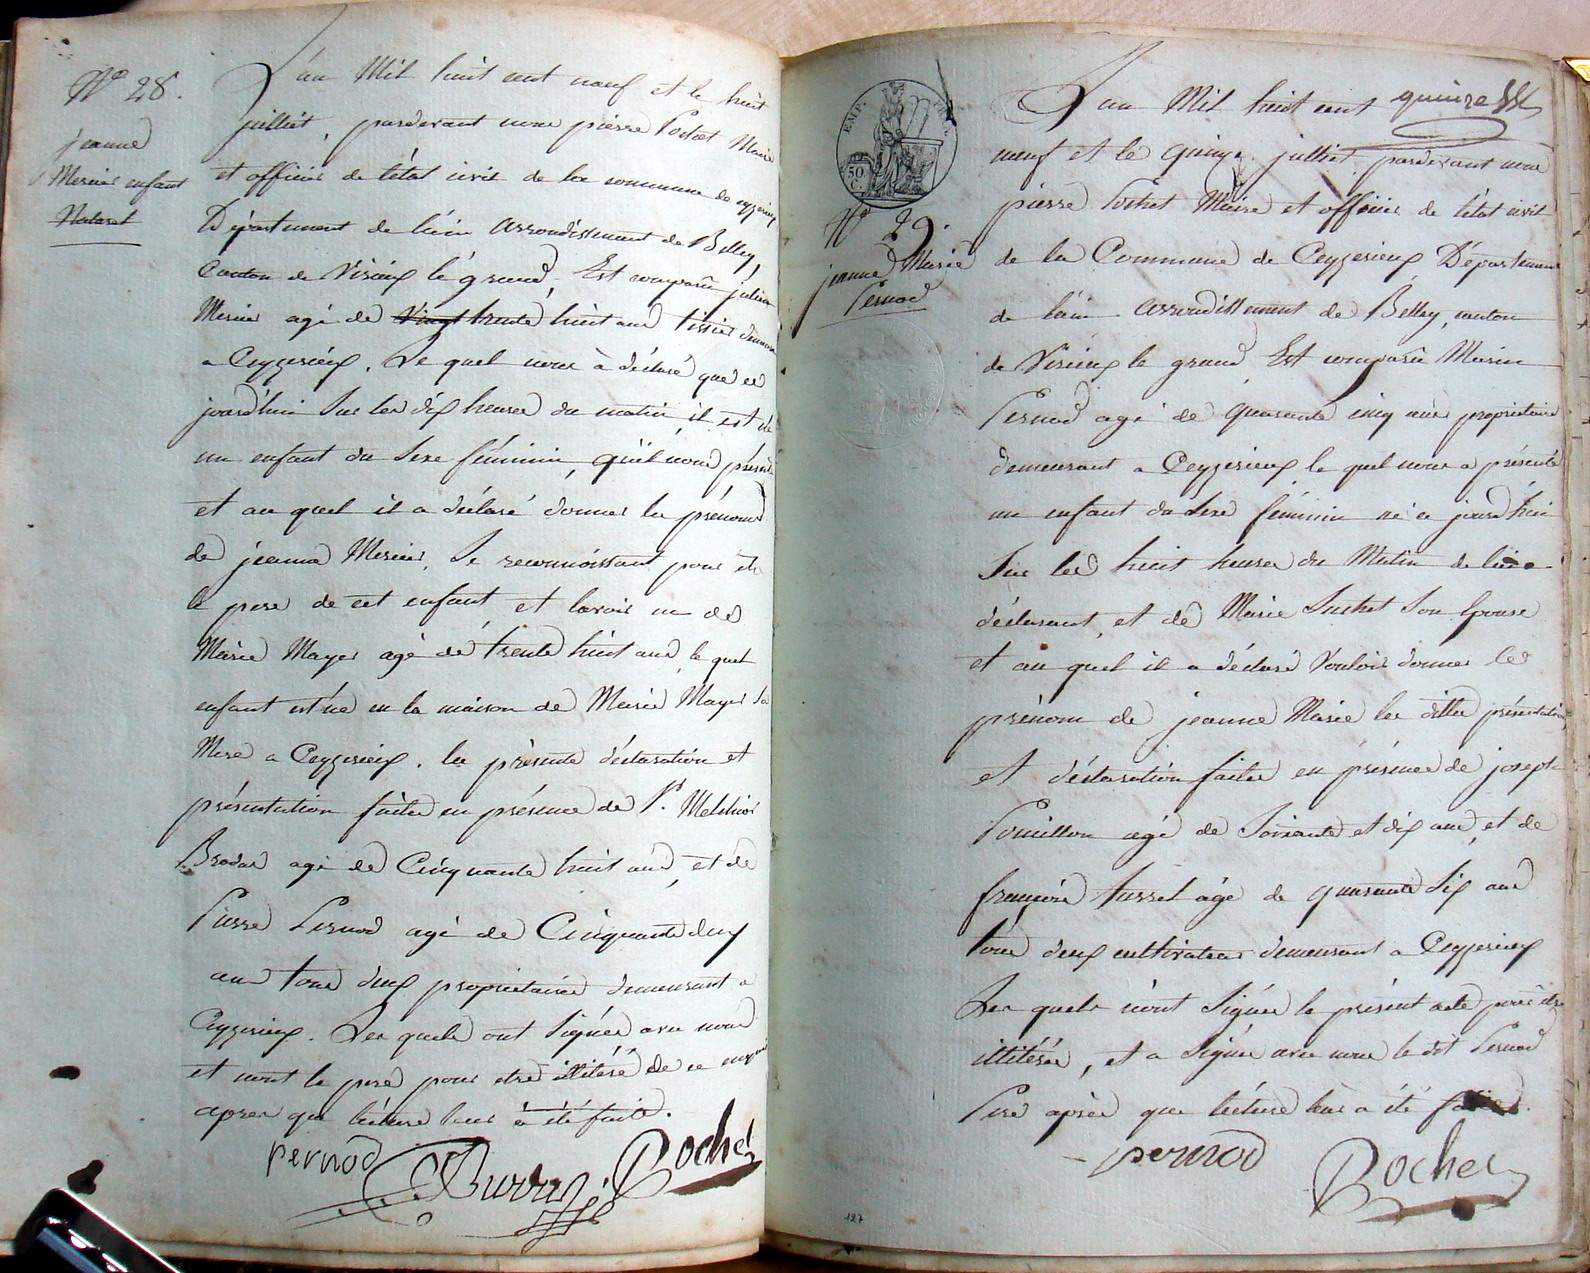 N° 28.
jeanne
Mercier enfant
Naturel
L'an Mil huit cent neuf et le huit
juilliet, pardevant nous pierre Rochet Maire
et officier de l'état civil de la commune de ceyzerieu
Département de l'ain arrondissement de Belley,
Canton de Virieux le grand, Est comparu julien
Mercier agé de vingt trente huit ans tissier demeurant
a Ceyzerieux. Le quel nous à déclaré que ce
jourd'hui sur les dix heures du matin, il est né
un enfant du sexe féminin, qu'il nous présente
et au quel il a déclaré donner les prénoms
de jeanne Mercier, se reconnoissant pour être
le pere de cet enfant, et l'avoir eu de
Marie Mayer agé de trente huit ans le quel
enfant est né en la maison de Marie Mayer sa
Mere a Ceyzerieux. les présente déclaration et
présentation faites en présence de Sr. Melchior
agé de Cinquante huit ans, et de
Pierre Pernod agé de Cinquante deux
ans tous deux propriétaires demeurant a
Ceyzerieux. Les quels ont signés avec nous
et non le pere pour etre illitéré de ce enquis
apres que lecture leur à été faite.
pernod Rochet
EMP.
50
C.
N° 29.
jeanne Marie
Pernod
L'an Mil huit cent quinze
neuf et le quinze juilliet pardevant nous
pierre Rochet Maire et officier de l'état civil
de la Commune de Ceyzerieux Département
de l'ain arrondissement de Belley, canton
de Virieux le grand, Est comparu
Pernod agé de quarante cinq ans propriétaire
demeurant a Ceyzerieux le quel nous a présenté
un enfant du sexe féminin né ce jourd'hui
sur les huit heures du Matin de lui
déclarant, et de Marie Suchet son Epouse
et au quel il a déclaré vouloir donner les
prénom de jeanne Marie les dittes présentation
et déclaration faites en présence de joseph
Pouillon agé de soixante et dix ans, et de
françois agé de quarante six ans
tous deux cultivateur demeurant a Ceyzerieux
Les quels n'ont signés le présent acte pour etre
illitérés, et a signé avec nous le dit Pernod
Pere après que lecture leur a été faites.
pernod
Rochet
127